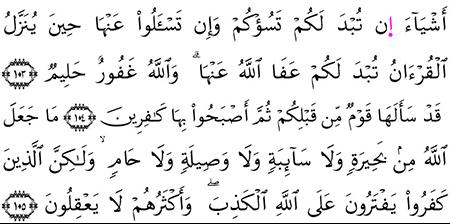 أَشْيَآءَ إِن تُبْدَ لَكُمْ تَسُؤْكُمْ وَإِن تَسْـَٔلُوا۟ عَنْهَا حِينَ يُنَزَّلُ
ٱلْقُرْءَانُ تُبْدَ لَكُمْ عَفَا ٱللَّهُ عَنْهَا ۗ وَٱللَّهُ غَفُورٌ حَلِيمٌ ﴿١٠٣﴾
قَدْ سَأَلَهَا قَوْمٌ مِّن قَبْلِكُمْ ثُمَّ أَصْبَحُوا۟ بِهَا كَـٰفِرِينَ ﴿١٠٤﴾ مَا جَعَلَ
ٱللَّهُ مِنۢ بَحِيرَةٍ وَلَا سَآئِبَةٍ وَلَا وَصِيلَةٍ وَلَا حَامٍ ۙ وَلَـٰكِنَّ ٱلَّذِينَ
كَفَرُوا۟ يَفْتَرُونَ عَلَى ٱللَّهِ ٱلْكَذِبَ ۖ وَأَكْثَرُهُمْ لَا يَعْقِلُونَ ﴿١٠٥﴾